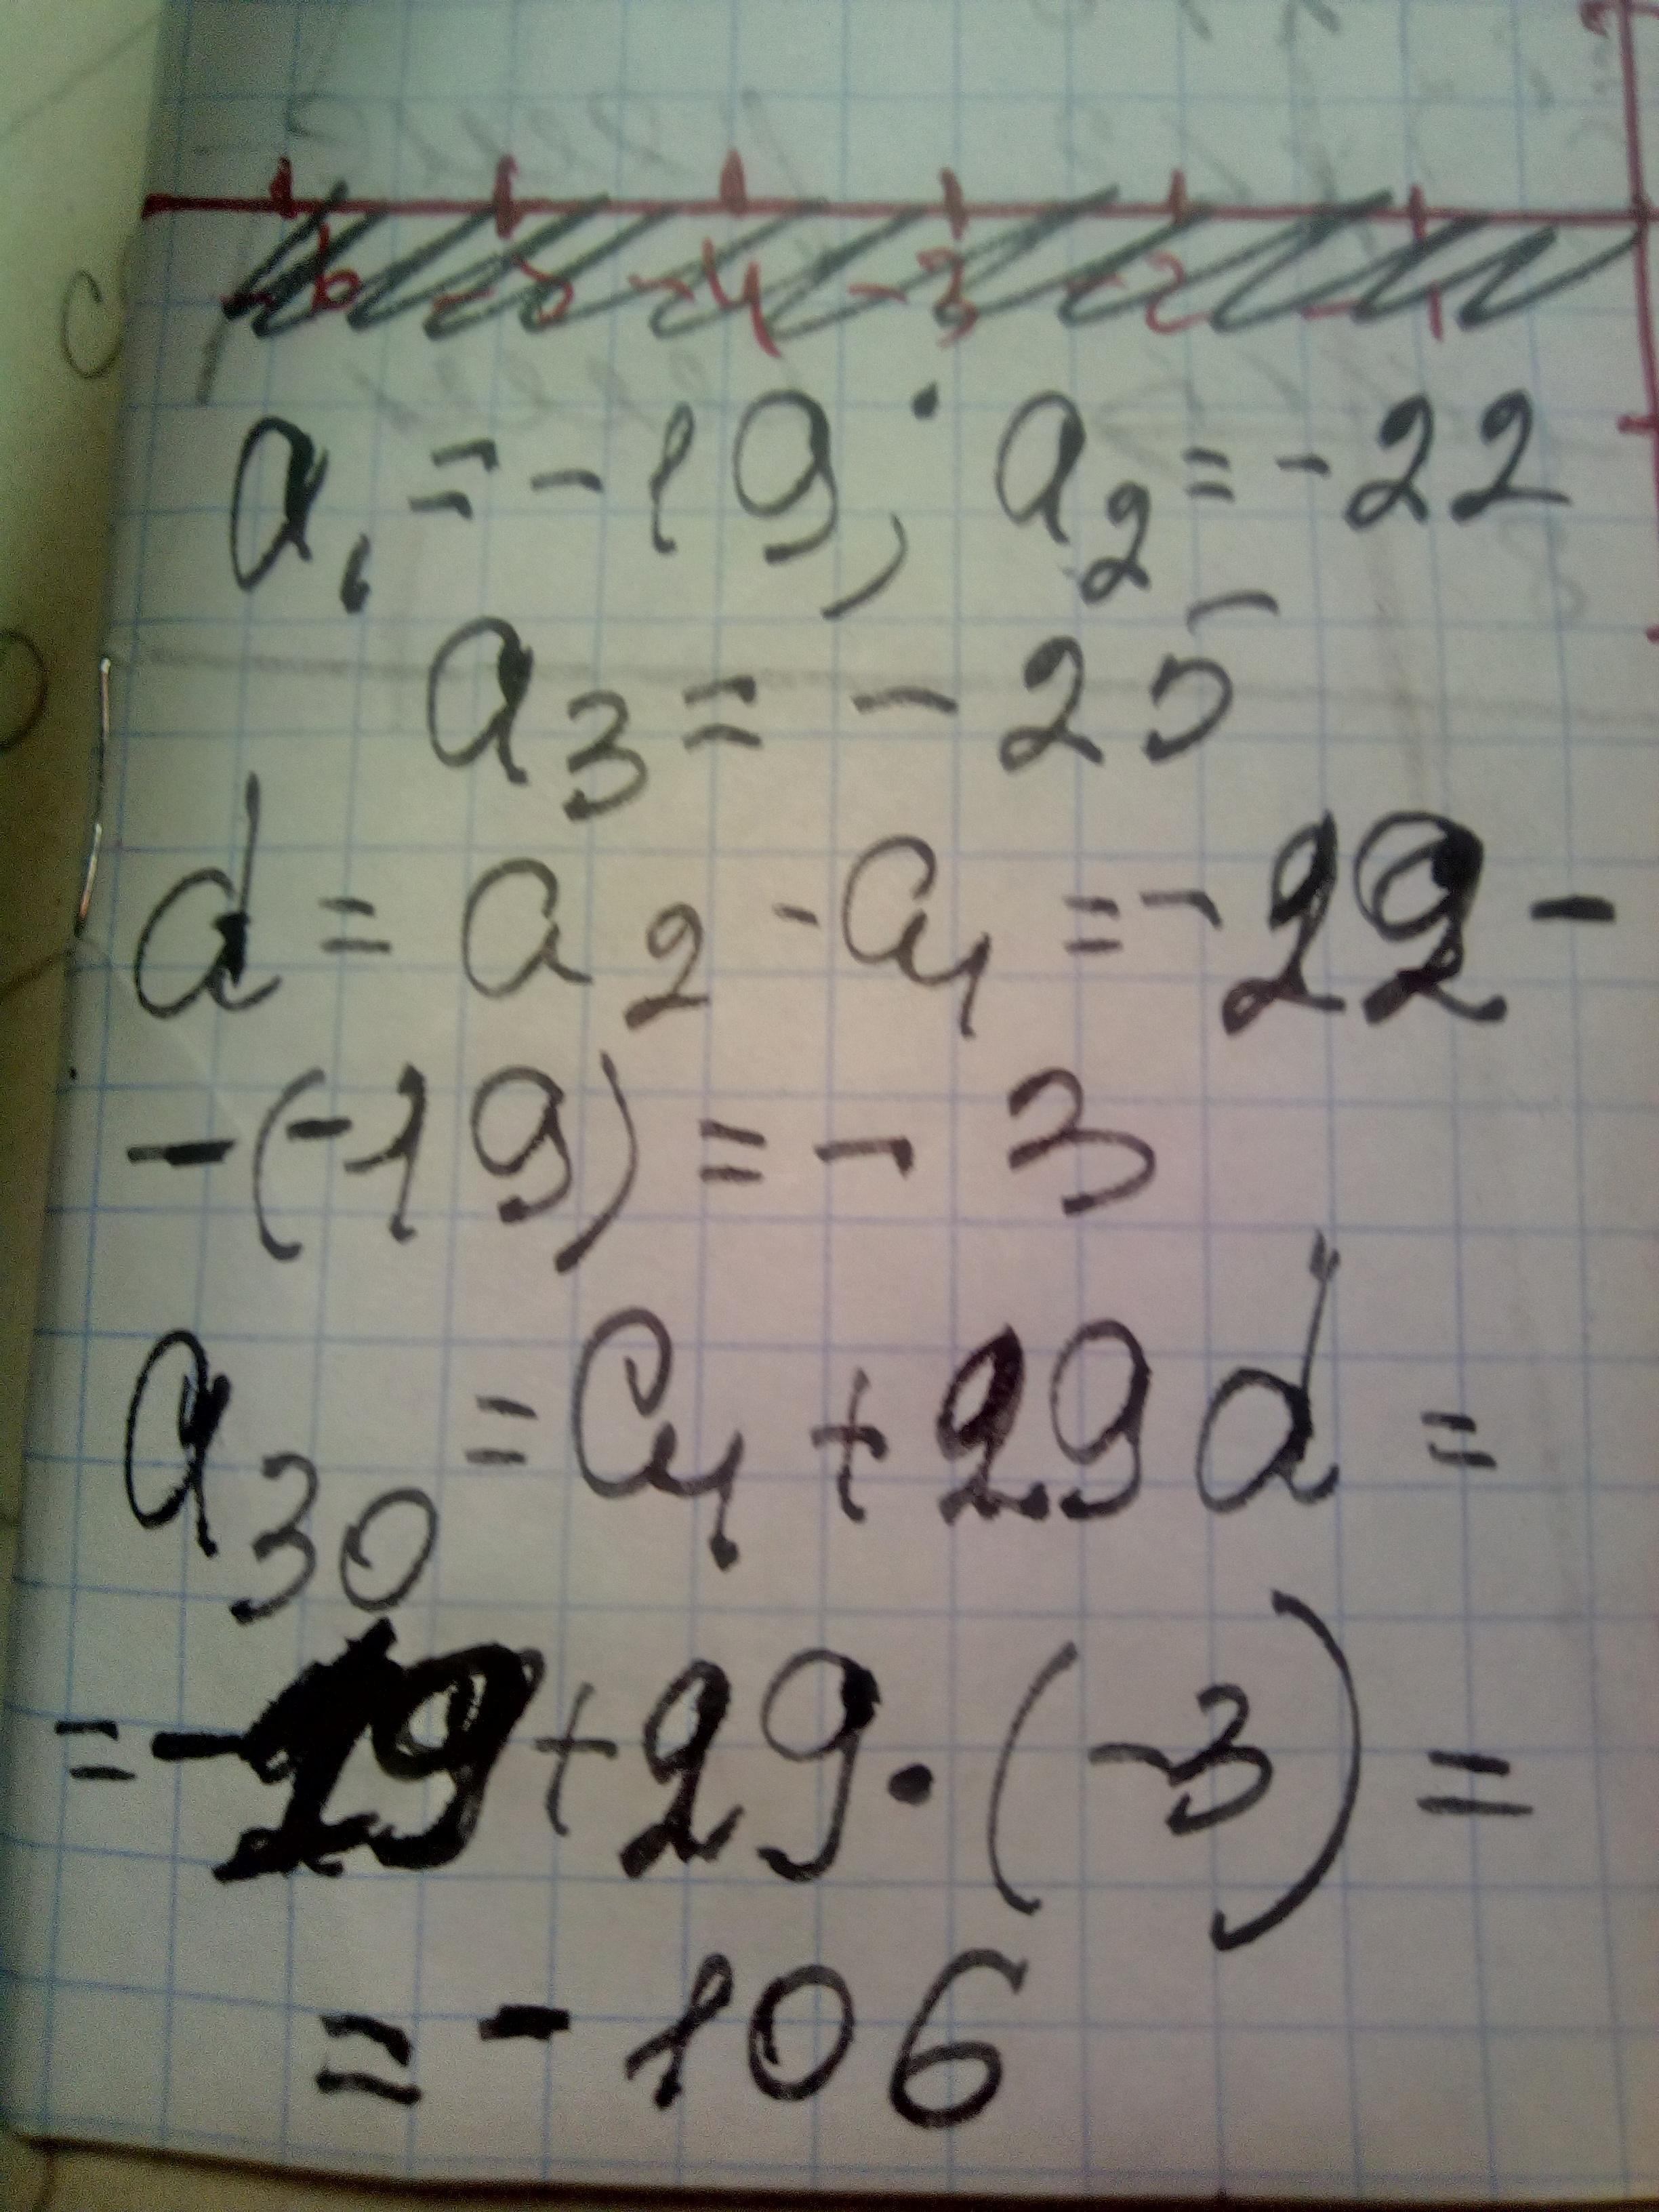 -6 -5 -4 -3 -2 -1
a₁ = -19; a₂ = -22
a₃ = - 25
d = a₂ - a₁ = - 22 -
- (-19) = - 3
a₃₀ = a₁ + 29d =
= -19 + 29 · (-3) =
= - 106